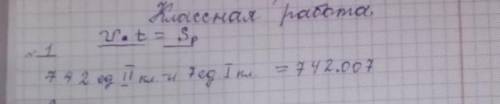 Классная работа.
v • t = Sр
№ 1
742 ед II кл. и 7 ед I кл. = 742.007